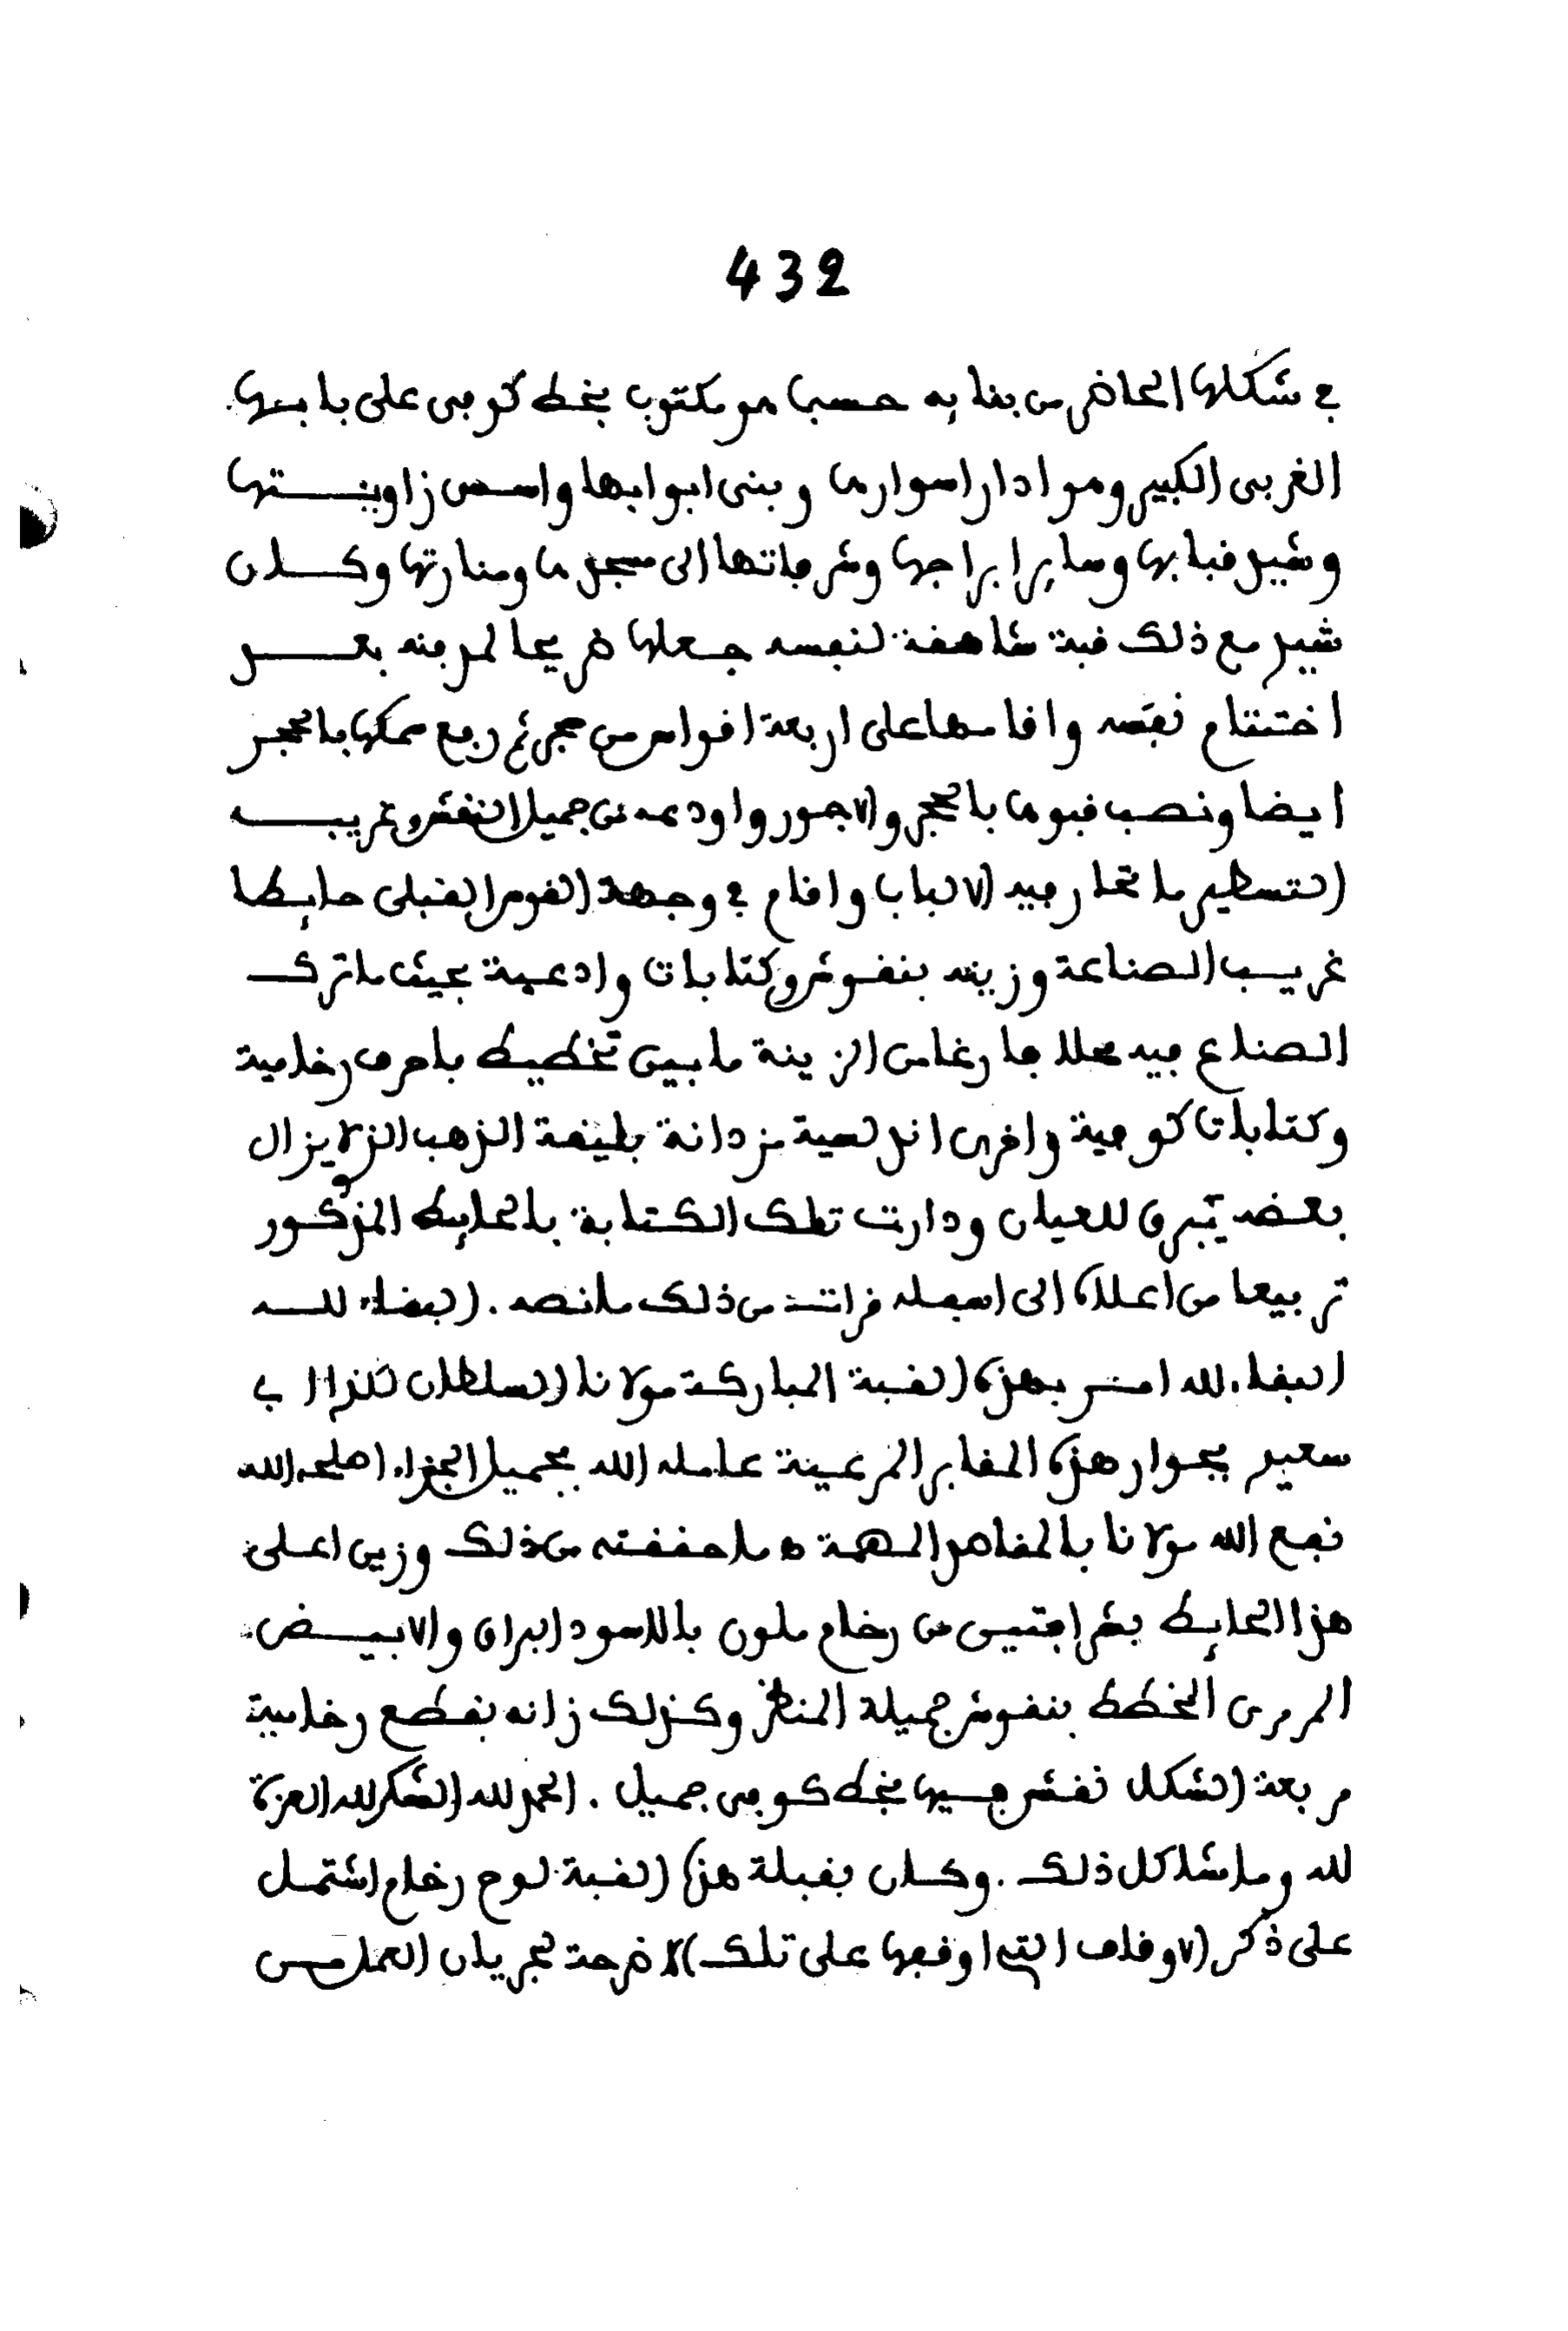 432
في شكلها الحاضر من بقايه حسبما هو مكتوب بخط كوفي على بابها
الغربي الكبير وهو ادار اسوارها وبنى ابوابها واسس زاويتها
وشيد قبابها وساير ابراجها وشرفاتها الى مسجدها ومنارتها وكان
شيد مع ذلك قبة شاهقة لنفسه جعلها ضريحا لمدفنه بعد
اختتام نفسه واقامها على اربعة اقواس من حجر ثم رفع سمكها بالحجر
ايضا ونصب قبوها بالحجر والاجور واودعه من جميل النقش وغريب
التسطير ما تحار فيه الالباب واقام في وجهة القوس القبلي حايطا
غريب الصناعة وزينه بنقوش وكتابات وادعية بحيث ما ترك
الصناع فيه محلا فارغا من الزينة ما بين تخطيط باحرف رخامية
وكتابات كوفية واخرى اندلسية مزدانة بليقة الذهب الذي لا يزال
بعضه يبرق للعيان ودارت تلك الكتابة بالحايط المذكور
تربيعا من اعلاه الى اسفله قرات من ذلك ما نصه . البقاء لله
البقاء لله امر بهذه القبة المباركة مولانا السلطان ابي
سعيد بجوار هذه المقابر المرعية عامله الله بجميل الجزاء اصلحه الله
نفع الله مولانا بالمقاصد المهمة ه ما حققته من ذلك وزين اعلى
هذا الحايط بشرافتين من رخام ملون بالاسود البراق والابيض
المرمرى المخطط بنقوش جميلة المنظر وكذلك زانه بقطع رخامية
مربعة الشكل نقش فيها بخط كوفي جميل . الحمد لله الشكر لله العزة
لله وما شاكل ذلك . وكان بقبلة هذه القبة لوح رخام اشتمل
على ذكر الاوقاف التي اوقفها على تلك الاضرحة لجريان العمل من